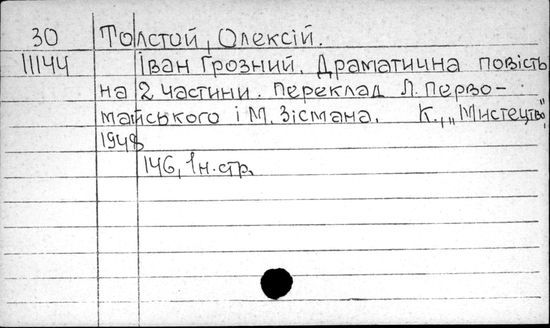 30 Толстой, Олексій.
11144 Іван Грозний. Драматична повість
на 2 частини. Переклад Л. Перво-
майського і М. Зісмана. К., „Мистецтво",
1948
146, 1 н. стр.